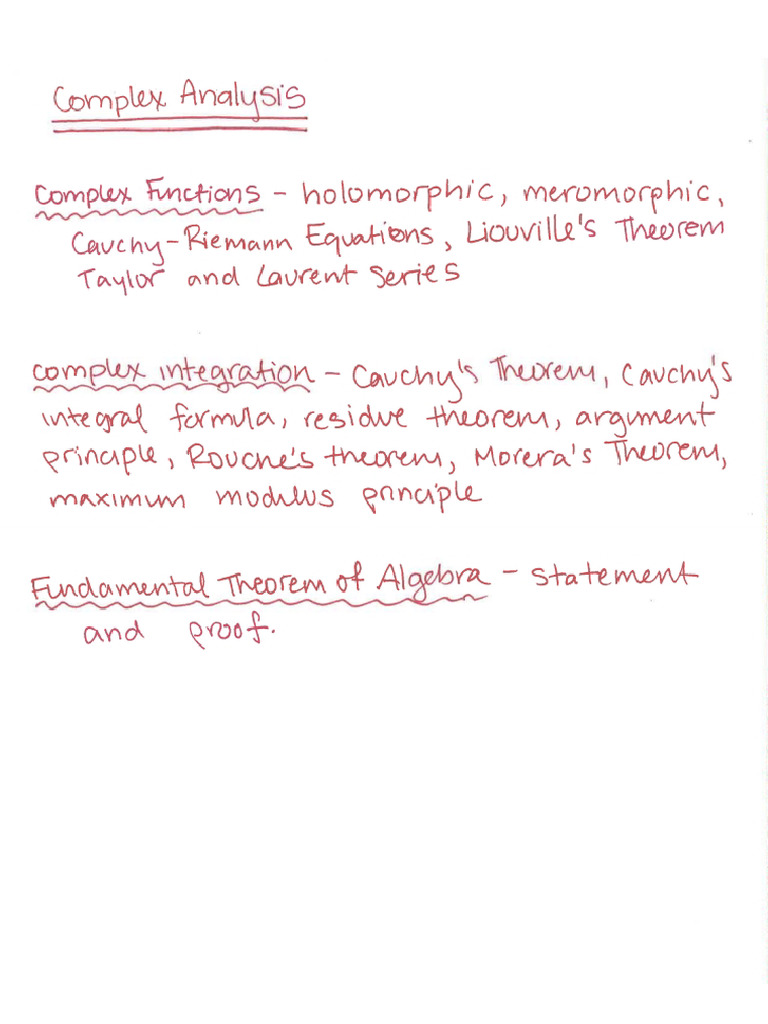 Complex Analysis
Complex Functions - holomorphic, meromorphic,
Cauchy-Riemann Equations, Liouville's Theorem
Taylor and Laurent Series
complex integration - Cauchy's Theorem, Cauchy's
integral formula, residue theorem, argument
principle, Rouche's theorem, Morera's Theorem,
maximum modulus principle
Fundamental Theorem of Algebra - statement
and proof.